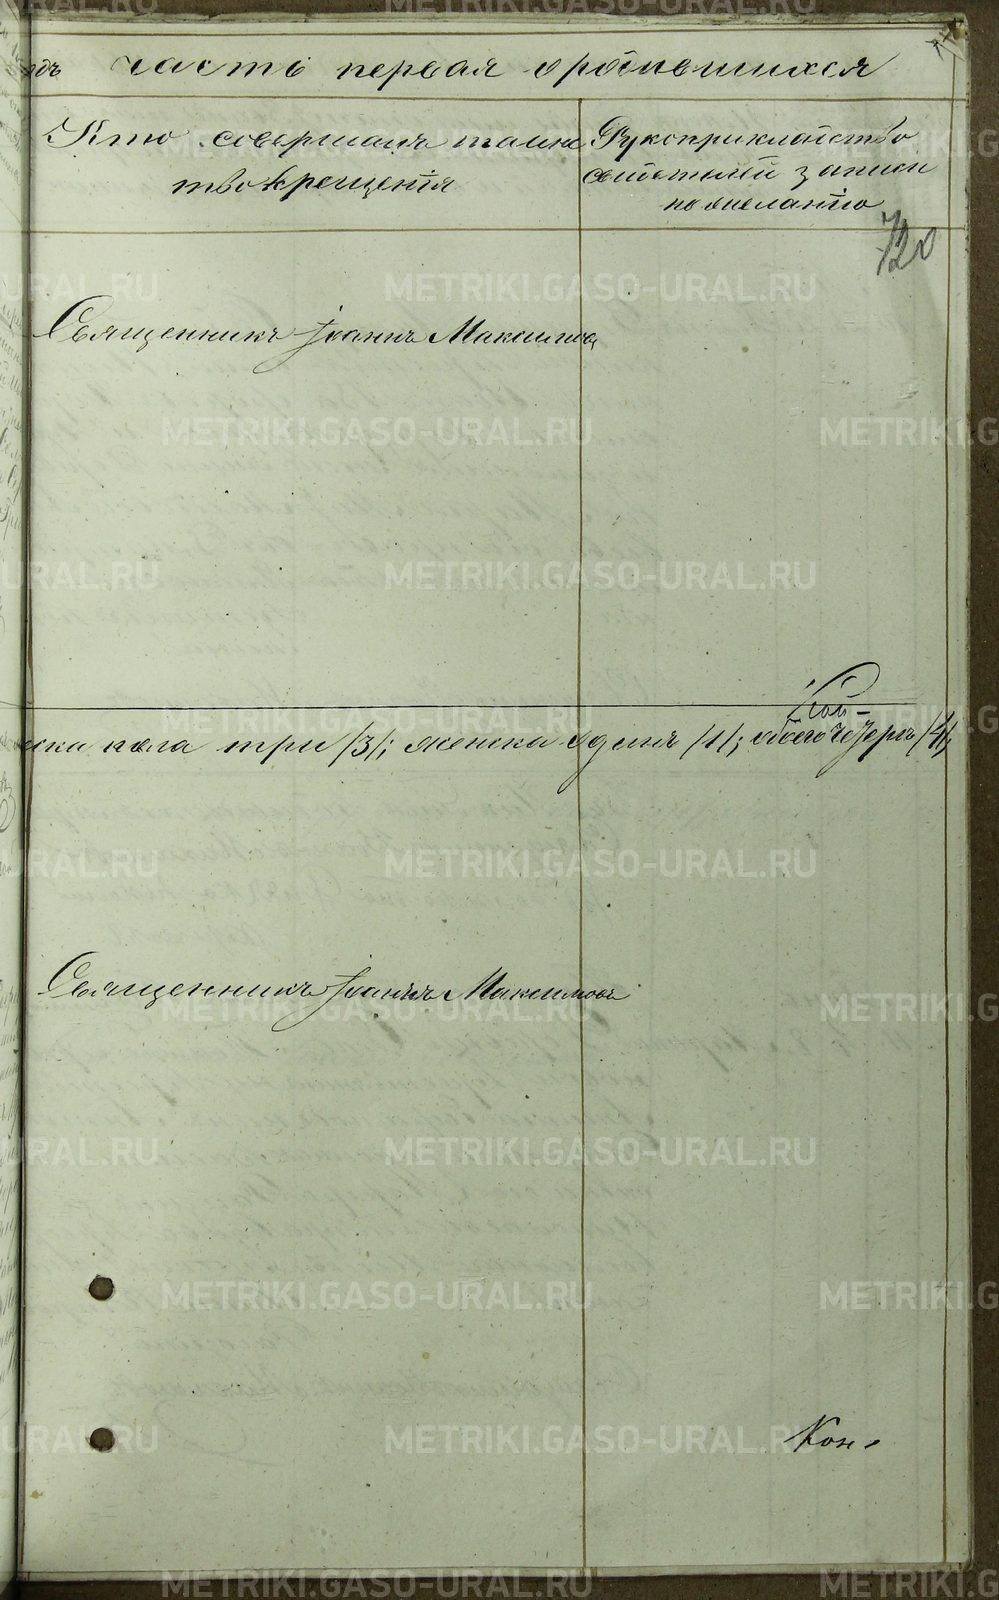 одъ часть первая о родившихся
Кто совершалъ таинс
тво крещенія
Рукоприкладство
свидѣтелей записи
по желанію
720
Священникъ Іоаннъ Максимов
ска пола три /3/; женска одинъ /1/; обоего четверо /4/;
Священникъ Іоаннъ Максимовъ
Кон
METRIKI.GASO-URAL.RU